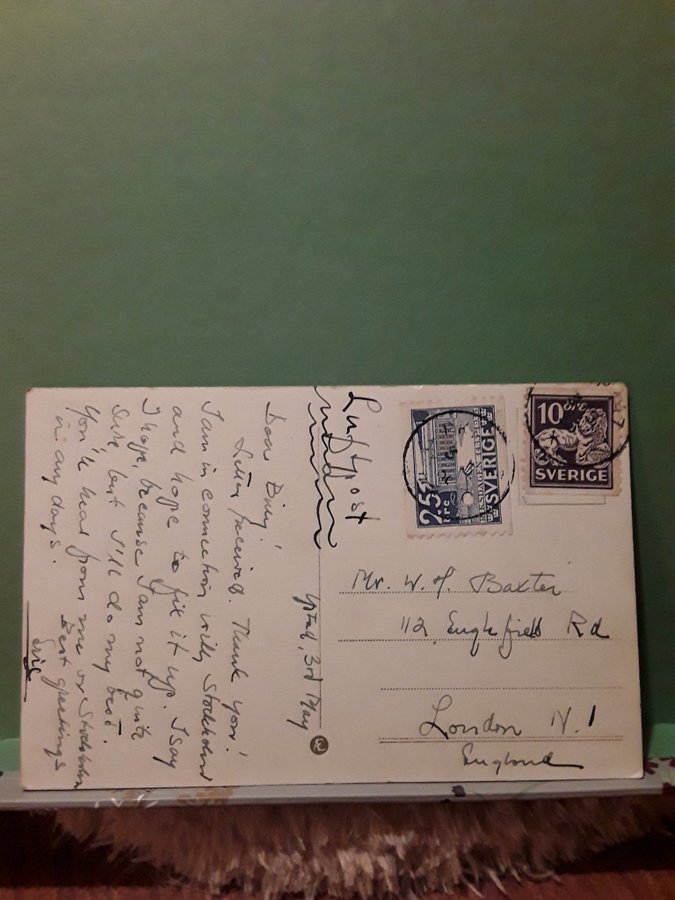 Luftpost
10 öre
SVERIGE
25
öre
SVERIGE
Mr. W. H. Baxter
112, Englefield Rd
London N. 1
England
Ystad, 3rd May
Dear Billy!
Letter received. Thank you!
I am in connection with Stockholm
and hope to fix it up. I say
I hope, because I am not quite
sure but I'll do my best.
You'll hear from me or Stockholm
in any days.
Best greetings